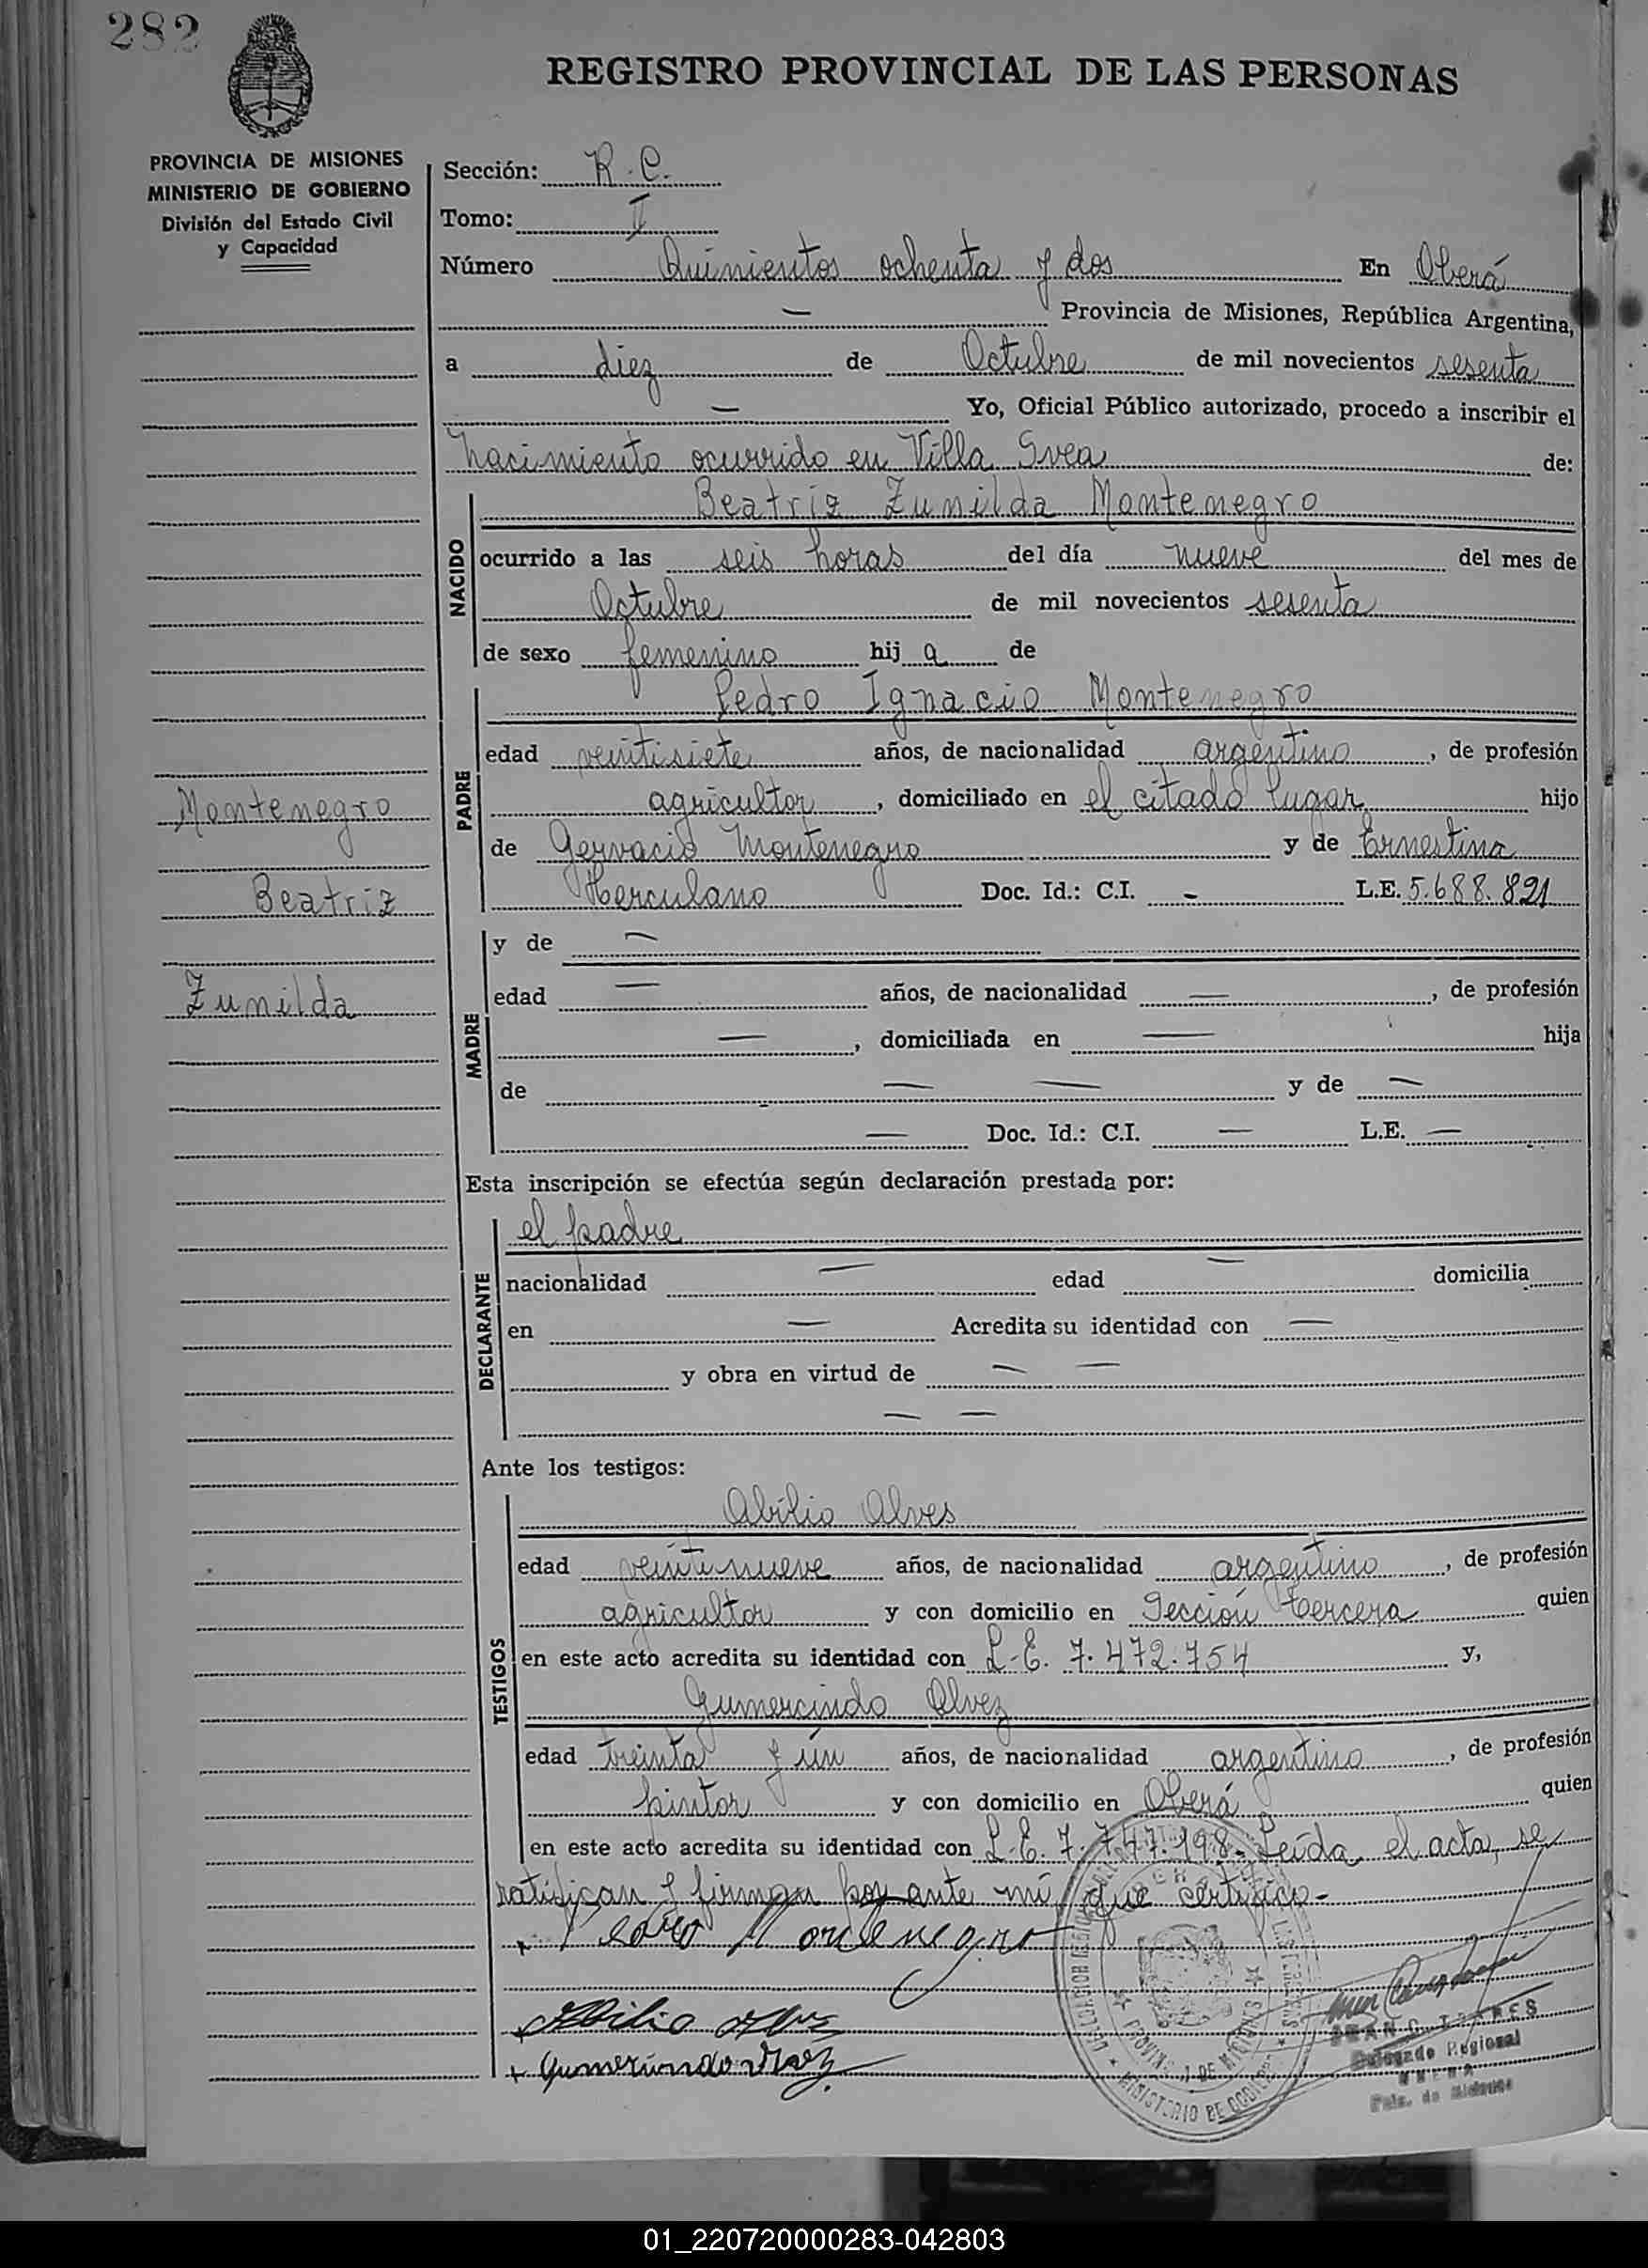 282
REGISTRO PROVINCIAL DE LAS PERSONAS
PROVINCIA DE MISIONES
MINISTERIO DE GOBIERNO
División del Estado Civil
y Capacidad
Sección: R. C.
Tomo: II
Número Quinientos ochenta y dos En Oberá
— Provincia de Misiones, República Argentina,
a diez de Octubre de mil novecientos sesenta
— Yo, Oficial Público autorizado, procedo a inscribir el
nacimiento ocurrido en Villa Svea de:
NACIDO
Beatriz Zunilda Montenegro
ocurrido a las seis horas del día nueve del mes de
Octubre de mil novecientos sesenta
de sexo femenino hij a de
PADRE
Pedro Ignacio Montenegro
edad veintisiete años, de nacionalidad argentino, de profesión
agricultor, domiciliado en el citado lugar hijo
de Gervacio Montenegro y de Ernestina
Herculano Doc. Id.: C.I. - L.E. 5.688.821
Montenegro
Beatriz
Zunilda
MADRE
y de —
edad — años, de nacionalidad —, de profesión
—, domiciliada en — hija
de — — y de —
— Doc. Id.: C.I. — L.E. —
Esta inscripción se efectúa según declaración prestada por:
DECLARANTE
el padre
nacionalidad — edad — domicilia
en — Acredita su identidad con —
y obra en virtud de — —
— —
Ante los testigos:
TESTIGOS
Abilio Alves
edad veintinueve años, de nacionalidad argentino, de profesión
agricultor y con domicilio en Sección tercera quien
en este acto acredita su identidad con L.E. 7.472.754 y,
Gumercindo Alvez
edad treinta y ún años, de nacionalidad argentino, de profesión
pintor y con domicilio en Oberá quien
en este acto acredita su identidad con L.E. 7.747.198. Leída el acta, se
ratifican y firman por ante mí, que certifico-
+ Pedro Montenegro
+ Abilio Alvez
+ Gumercindo Alvez
PROVINCIA DE MISIONES
MINISTERIO DE GOBIERNO
Delegado Regional
01_220720000283-042803